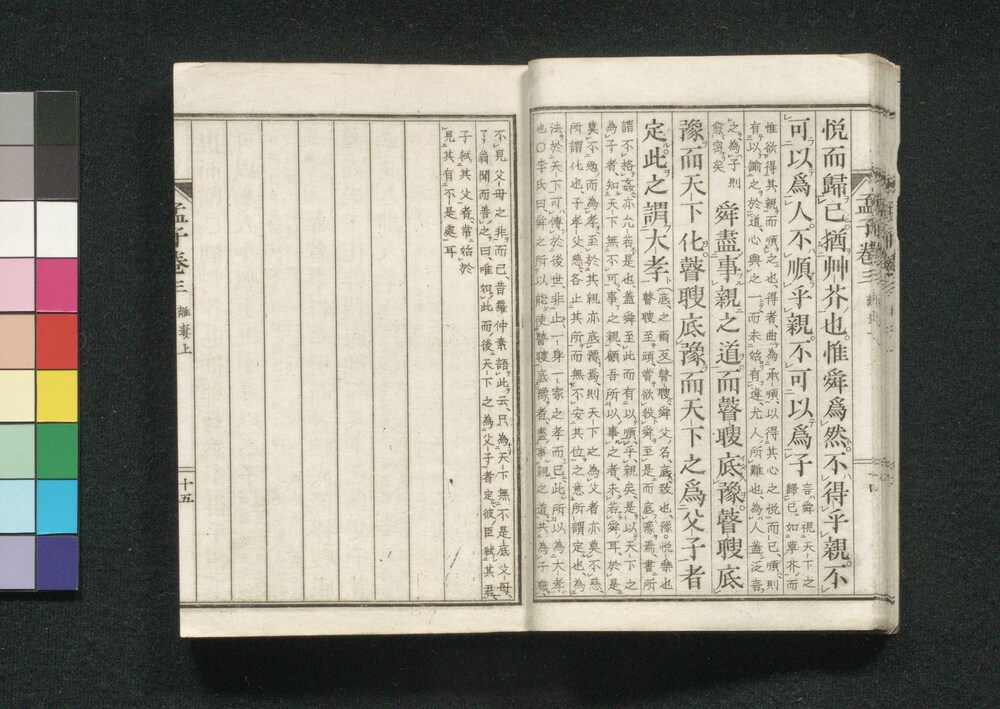 悦而歸己。猶艸芥也。惟舜爲然。不得乎親。不
可以爲人。不順乎親。不可以爲子
言舜視天下之
歸己如草芥而
惟欲得其親而順之也、得者曲爲承順以得其心之悦而已、順則
有以諭之於道、心與之一、而未始有違、尤人所難也、爲人蓋泛言
之、爲子則
愈密矣
舜盡事親之道。而瞽瞍底豫。瞽瞍底
豫。而天下化。瞽瞍底豫。而天下之爲父子者
定。此之謂大孝
底之爾反
瞽瞍、舜父名、底致也、豫悦樂也
瞽瞍至頑、嘗欲殺舜、至是而底豫焉、書所
謂不格姦、亦允若是也、蓋舜至此而有以順乎親矣、是以天下之
爲子者、知天下無不可事之親、顧吾所以事之者未若舜耳、於是
莫不勉而爲孝、至於其親亦底豫焉、則天下之爲父者亦莫不慈、
所謂化也、子孝父慈、各止其所、而無不安其位之意、所謂定也、爲
法於天下、可傳於後世、非止一身一家之孝而已、此所以爲大孝
也○李氏曰、舜之所以能使瞽瞍底豫者、盡事親之道、共爲子職、
不見父母之非而已、昔羅仲素語此云、只爲天下無不是底父母、
了翁聞而善之曰、唯如此而後天下之爲父子者定、彼臣弑其君、
子弑其父者、常始於
見其有不是處耳
孟子卷三
離婁上
十五
孟子卷三